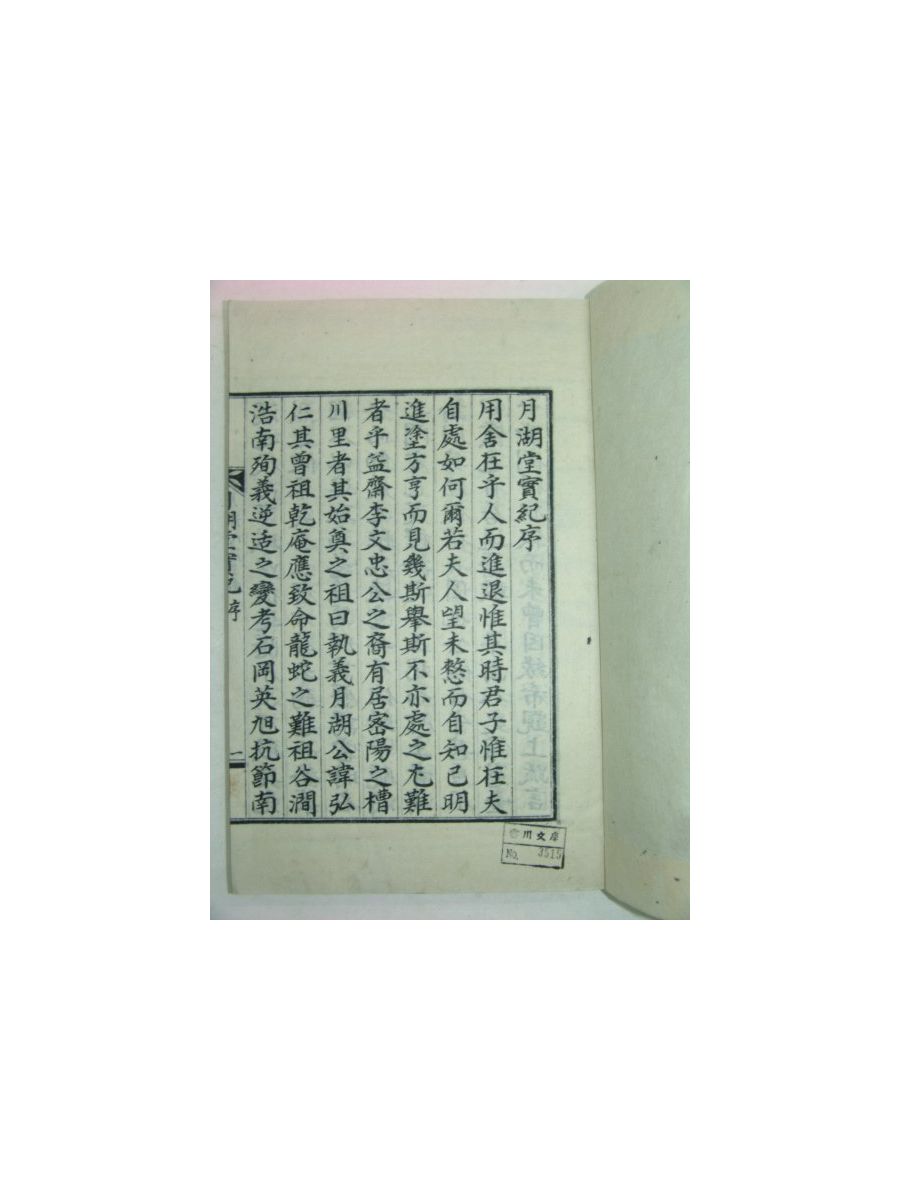 月湖堂實紀序
用舍在乎人而進退惟其時君子惟在夫
自處如何爾若夫人望未憗而自知已明
進塗方亨而見幾斯舉斯不亦處之尤難
者乎益齋李文忠公之裔有居密陽之槽
川里者其始奠之祖曰執義月湖公諱弘
仁其曾祖乾庵應致命龍蛇之難祖谷澗
浩南殉義逆适之變考石岡英旭抗節南
月湖堂實紀 序
一
川文庫
No. 3515